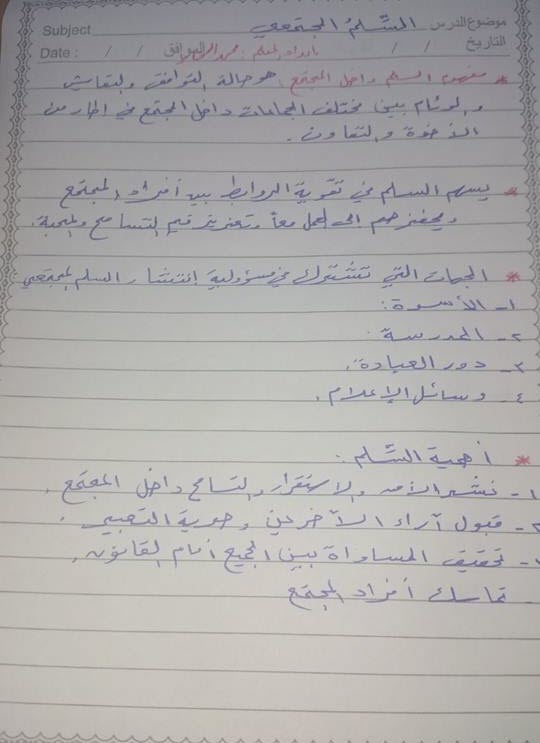 موضوع الدرس السّلم المجتمعي Subject
التاريخ / / الموافق / / Date :
* مفهوم السلم داخل المجتمع: هو حالة التوافق والتعايش
والوئام بين مختلف الجماعات داخل المجتمع في إطار من
الأخوة والتعاون.
* يسهم السلم في تقوية الروابط بين أفراد المجتمع
ويحفزهم إلى العمل معاً وتعزيز قيم التسامح والمحبة.
* الجهات التي تشترك في مسؤولية إنتشار السلم المجتمعي
١- الأسرة:
٢- المدرسة.
٣- دور العبادة.
٤- وسائل الإعلام.
* أهمية السّلم:
١- نشر الأمن والاستقرار والتسامح داخل المجتمع.
٢- قبول آراء الآخرين وحرية التعبير.
- تحقيق المساواة بين الجميع أمام القانون.
تماسك أفراد المجتمع